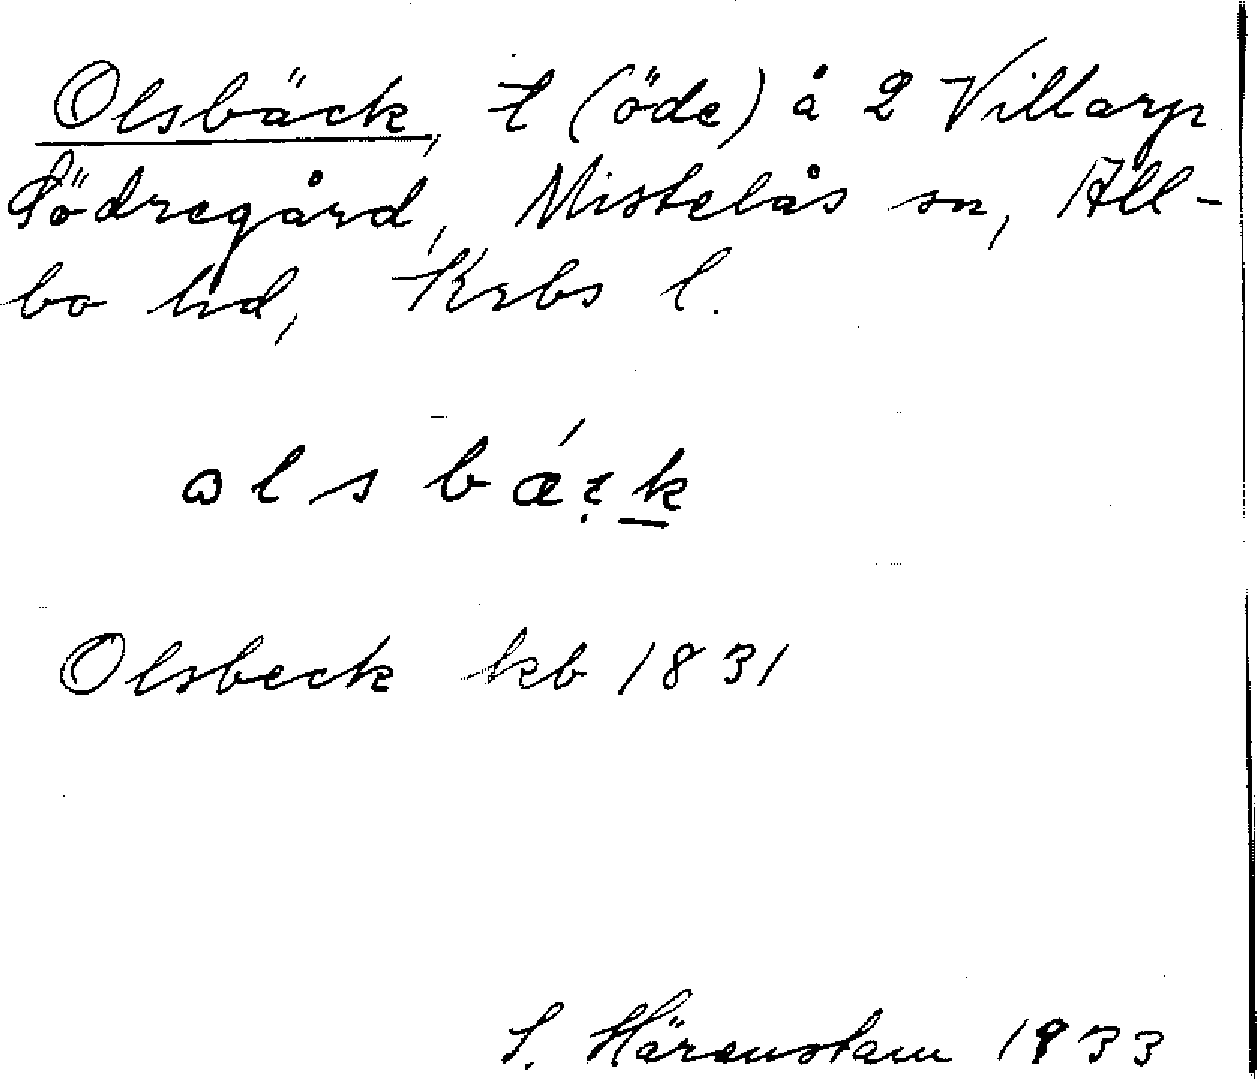 Olsbäck, t (öde) å 2 Villarp
Södregård, Mistelås sn, All-
bo hd, Krbs l.
Olsbeck kb 1831
S. Härenstam 1933